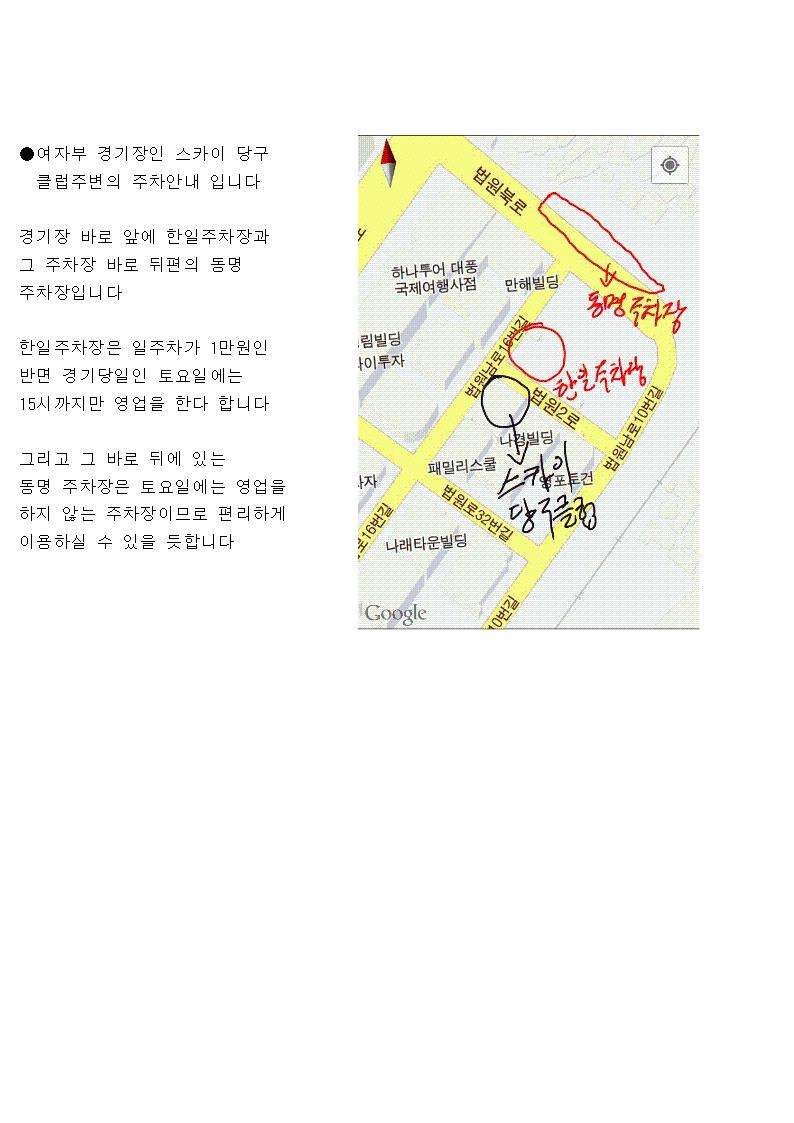 ●여자부 경기장인 스카이 당구
클럽주변의 주차안내 입니다
경기장 바로 앞에 한일주차장과
그 주차장 바로 뒤편의 동명
주차장입니다
한일주차장은 일주차가 1만원인
반면 경기당일인 토요일에는
15시까지만 영업을 한다 합니다
그리고 그 바로 뒤에 있는
동명 주차장은 토요일에는 영업을
하지 않는 주차장이므로 편리하게
이용하실 수 있을 듯합니다
법원북로
하나투어 대풍
국제여행사점
만해빌딩
동명 주차장
림빌딩
이투자
법원남로16번길
한일주차장
법원2로
법원남로10번길
나경빌딩
패밀리스쿨
스카이
당구클럽
포토건
자
법원로32번길
로16번길
나래타운빌딩
10번길
Google